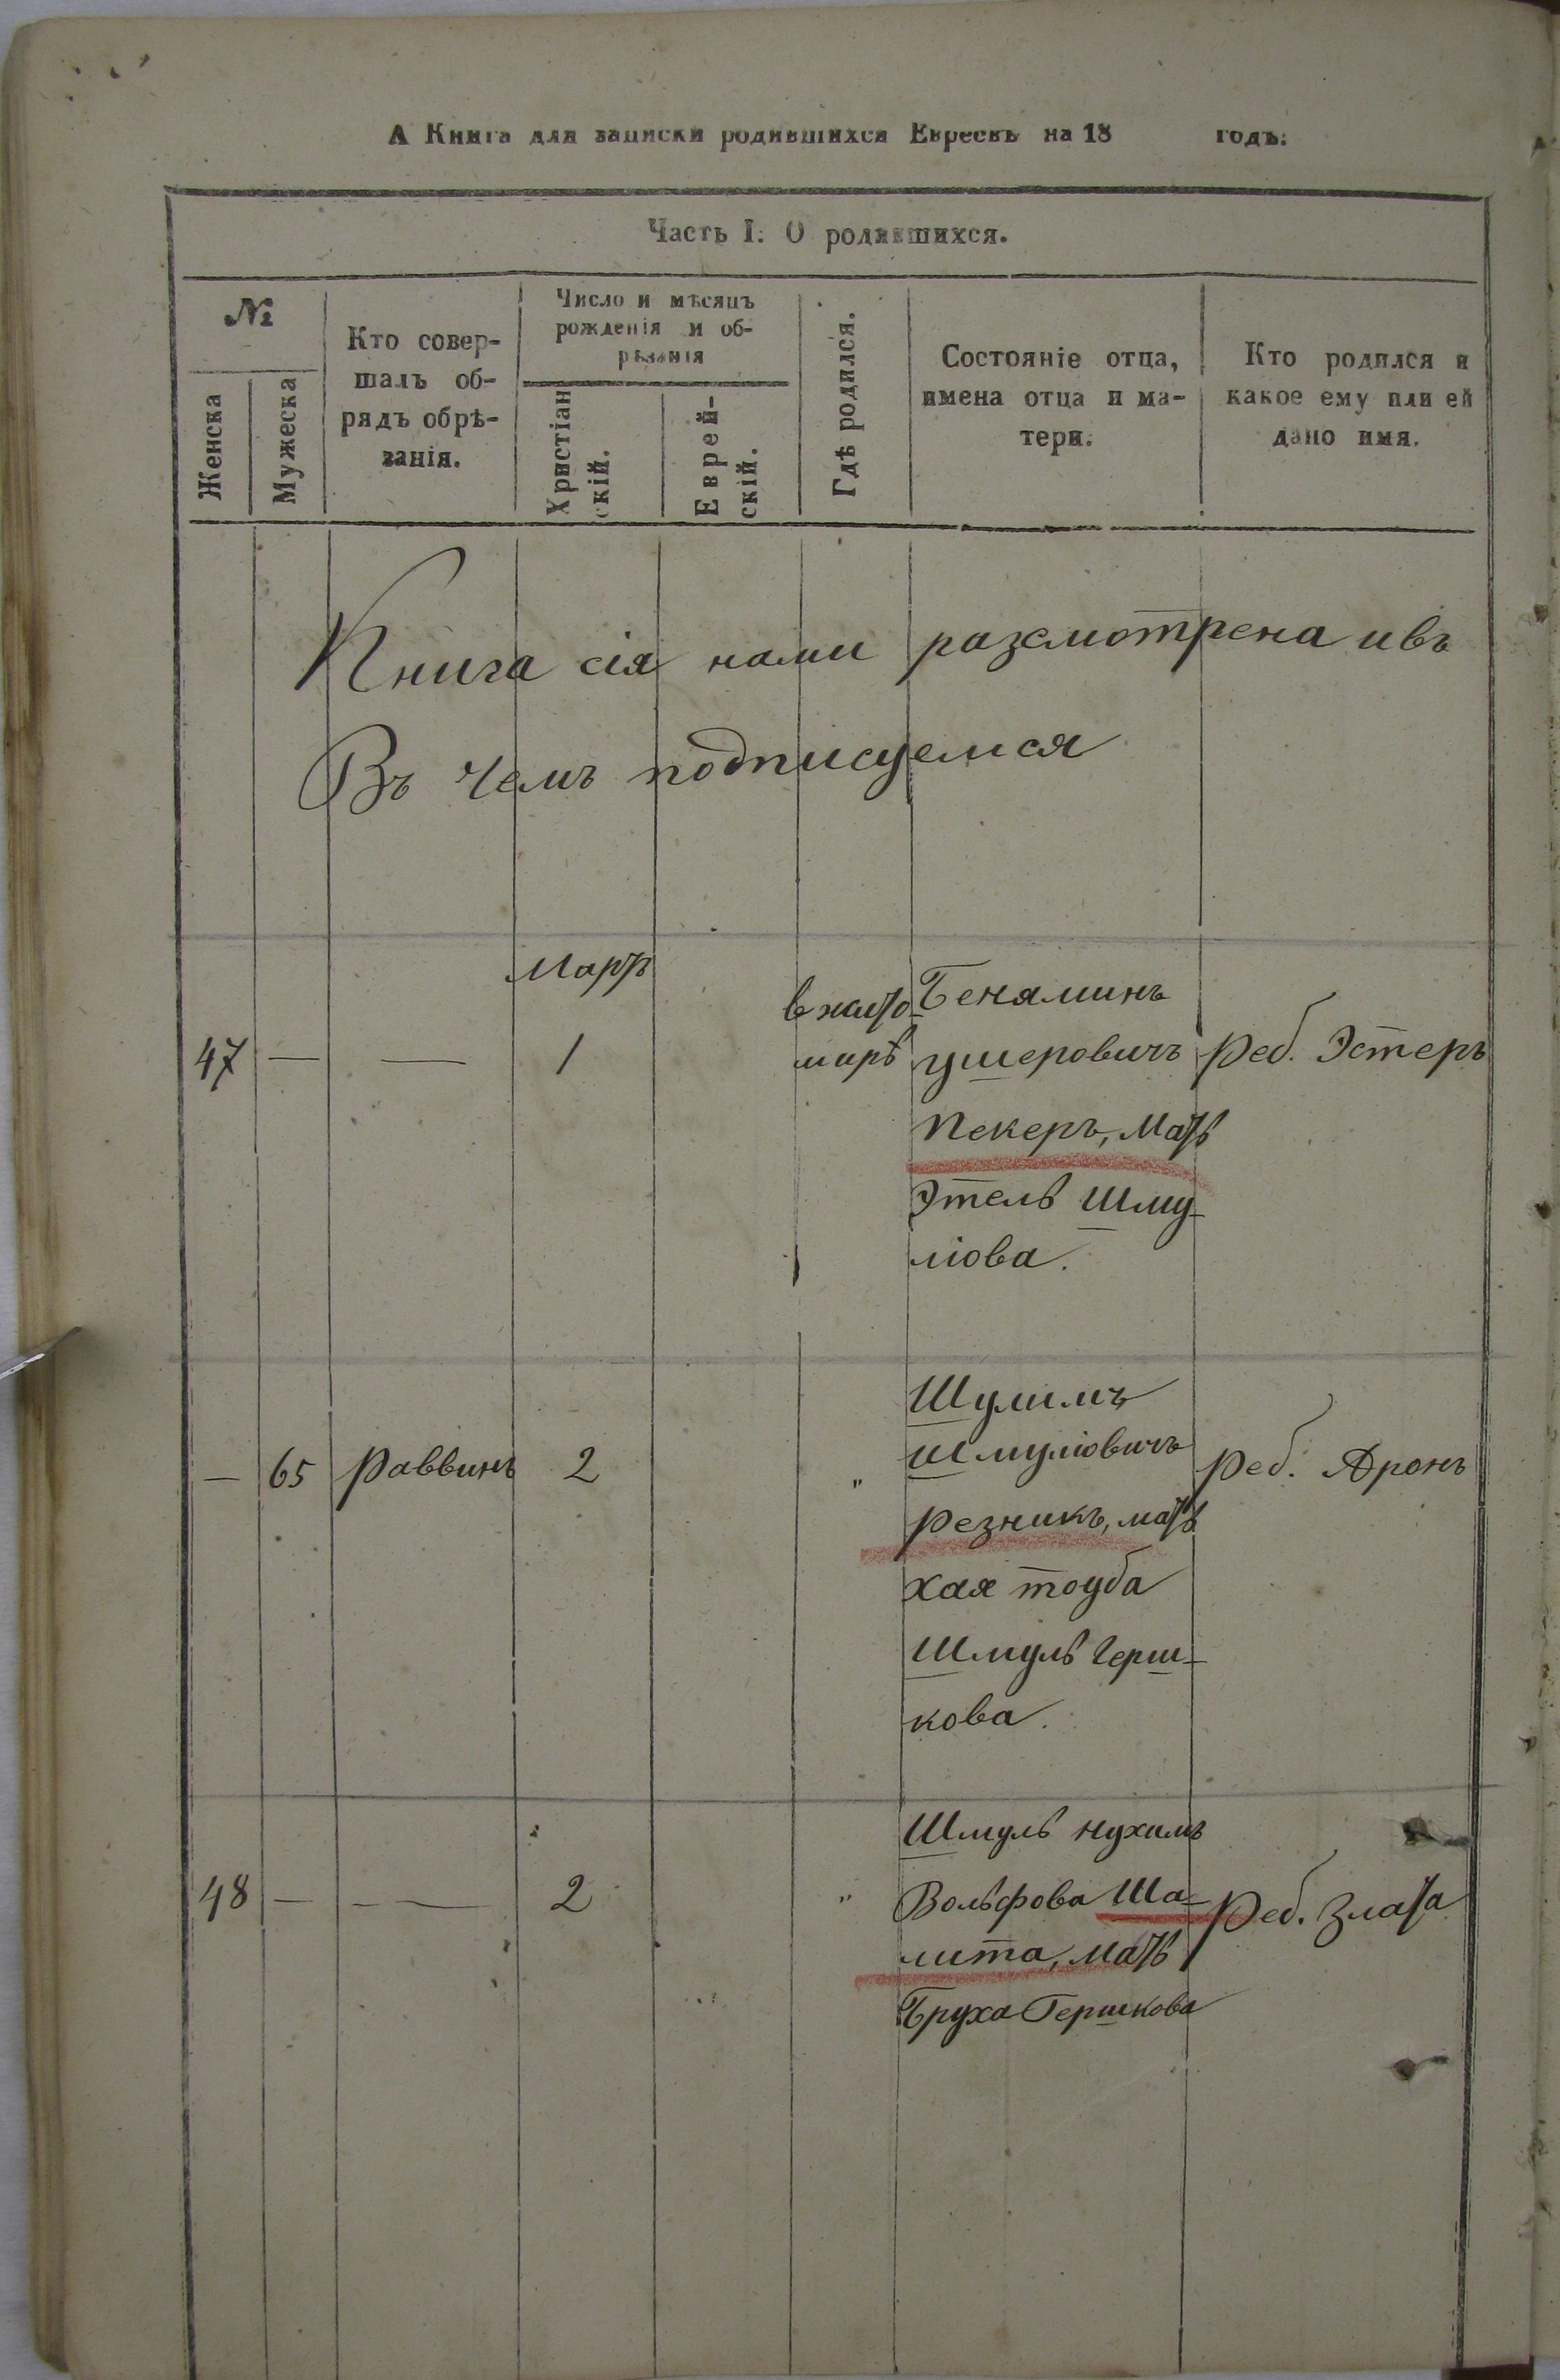 А Книга для записки родившихся Евреевъ на 18 годъ:
Часть I: О родившихся.
№
Женска
Мужеска
Кто совер-
шалъ об-
рядъ обрѣ-
занія.
Число и мѣсяцъ
рожденія и об-
рѣзанія
Христіан
скій.
Еврей-
скій.
Гдѣ родился.
Состояніе отца,
имена отца и ма-
тери.
Кто родился и
какое ему или ей
дано имя.
Книга сія нами разсмотрена ивъ
Въ чемъ подписуемся
Мартъ
47 — — 1
в жито-
мирѣ
Беняминъ
ушеровичъ
Пекеръ, Мать
Этель Шму-
ліова.
Реб. Эстеръ
— 65 Раввинъ 2 "
Шулимъ
Шмуліовичъ
Резникъ, мать
хая тоуба
Шмуль Герш-
кова.
Реб. Аронъ
48 — — 2 "
Шмуль нухимъ
Вольфова Ша-
лита, мать
Бруха Гершкова
Реб. Злата